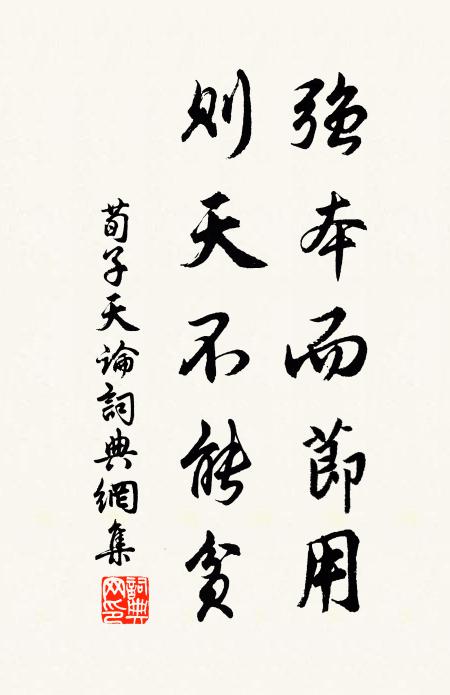 强本而節用
則天不能貧
荀子天論詞典網集
詞典網印